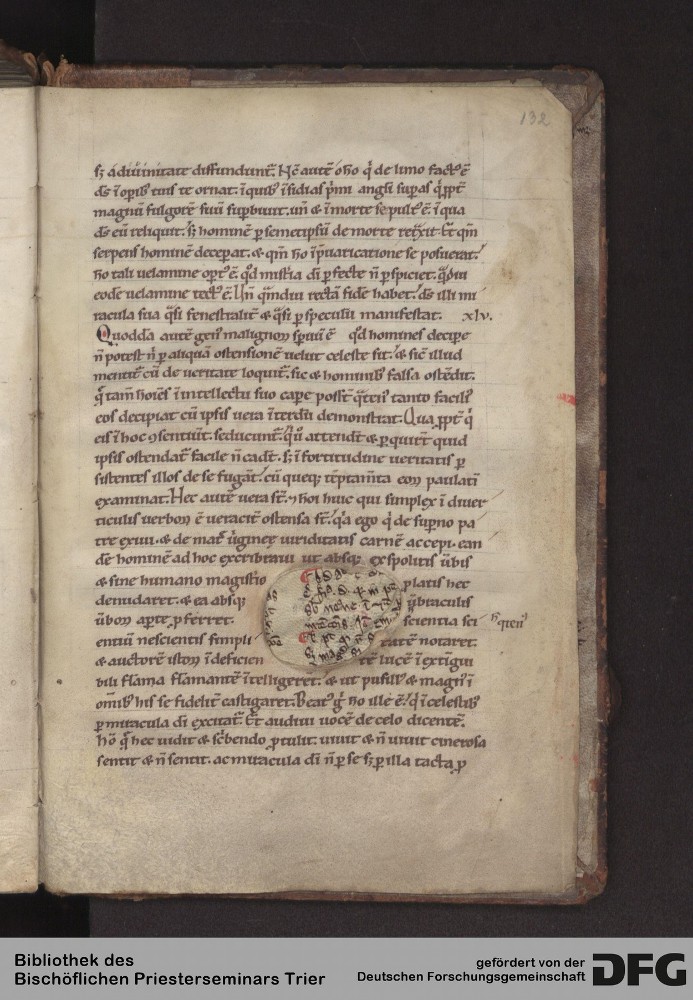 132
sʒ a diuinitate diffundunt͛. Hec̄ autē o hō qͥ de limo factꝰ ē
ds̄ ī opibꝰ tuis te ornat. ī quibꝰ īsidias pͥmi angli supͣas
magnū fulgorē suū supbiuit. un̄ & ī morte sepultꝰ ē. ī qua
ds̄ eū reliquit. sʒ hominē ꝑ semetipsū de morte. Et qm̄
serpens hominē deceperat. & qm̄ hō īp̄uaricatione se posuerat.
hō tali uelamine optꝰ ē. qd̓ mist̓ia di ꝑfecte n̄ ꝑspiciet. qͣdiu
eodē uelamine tectꝰ ē. Un̄ qͣmdiu rectā fidē habet. ds̄ illi mi
racula sua qͣsi fenestralit̓ & qͣsi ꝑ speculū manifestat. xlv.
Quoddā autē genꝰ malignoꝝ spirituū ē qd̓ homines decipe
n̄ potest n̄ ꝑ aliquā ostensionē uelut celeste sit. & sic illud
mentit͛ cū de ueritate loquit͛. sic & hominibꝰ falsa ostēdit.
qͥ tam̄ hoīes ī intellectu suo cape possēt qͣtenꝰ tanto faciliꝰ
eos decipiat cū ipsis uera īterdū demonstrat. Qua ꝓpt̓ qͥ
eis ī hoc ꝯsentiūt. seducunt͛. qͥ ū attendūt & ꝑquirūt quid
ipsis ostendat͛ facile n̄ cadūt. sʒ ī fortitudine ueritatis ꝑ
sistentes illos de se fugāt. cū queqʒ tēptam̄ta eoꝝ paulatī
examinat. Hec autē uera st̄ & hoī huic qui simplex ī diuer
ticulis uerboꝝ ē ueracit̓ ostensa st̄. qͥa ego qͥ de supno pa
tre exiui. & de mat̓ uͥgineę uiriditatis carnē accepi. ean
dē hominē ad hoc excribraui ut absqʒ expolitis ūbis
& sine humano magistͥo platis hec
denudaret. & ea absqʒ ūbraculis
ūboꝝ apte ꝓferret. scientia sci qͣtenꝰ
entiū nescientis simpli tatē notaret.
& auctorē istoꝝ īdeficien tē lucē ī extīgui
bili flāma flamantē ītelligeret. & ut pusillꝰ & magnꝰ ī
omībꝰ his se fidelit̓ castigaret. Beatꝰ g̊ hō ille ē. qͥ ī celestibꝰ
ꝑ miracula di excitat͛. Et audiui uocē de celo dicentē.
Hō qͥ hec uidit & scͥbendo ꝓtulit. uiuit & n̄ uiuit cinerosa
sentit & n̄ sentit. ac miracula di n̄ ꝑ se sʒ ꝑ illa tacta ꝓ
Bibliothek des
Bischöflichen Priesterseminars Trier
gefördert von der
Deutschen Forschungsgemeinschaft
DFG